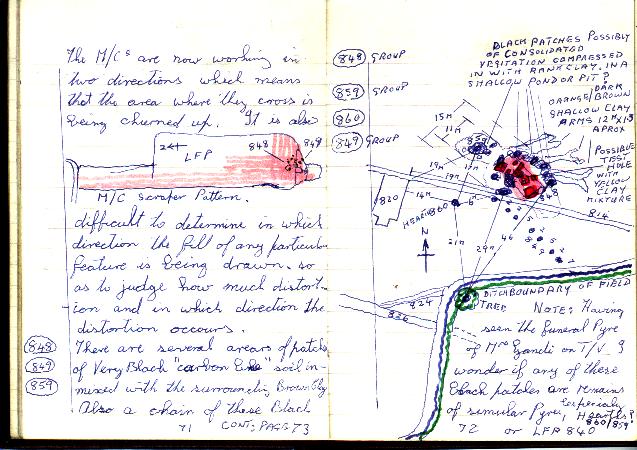 The M/Cs are now working in
two directions which means
that the area where they cross is
being churned up. It is also
24
LFP
848
849
M/C scraper Pattern.
difficult to determine in which
direction the fill of any particular
feature is being drawn. so
as to judge how much distort-
ion and in which direction the
distortion occurs.
848
849
859
There are several arears of patchs
of Very Black "carbon like" soil in-
mixed with the surrounding Brown Clay
Also a chain of these Black
71 CONT: PAGE 73
848 GROUP
859 GROUP
860
849 GROUP
BLACK PATCHES POSSIBLY
OF CONSOLIDATED
VEGITATION COMPRESSED
IN WITH RANK CLAY. IN A
SHALLOW POND OR PIT?
DARK
ORANGE/BROWN
SHALLOW CLAY
ARMS 12M X 1.5
APROX
POSSIBLE
TEST
HOLE
WITH
YELLOW
CLAY
MIXTURE
15M
11M
859
19M
17M
19M
14M
820
HEARTH 860
6M
848
814
N
21M
29M
46
824
826
DITCH BOUNDARY OF FIELD
TREE
NOTE: Having
seen the funeral Pyre
of Mrs Gandi on T/V. I
wonder if any of these
black patches are remains
of simular Pyres,
Especialy
Hearths?
860/859?
72 or LFP 840